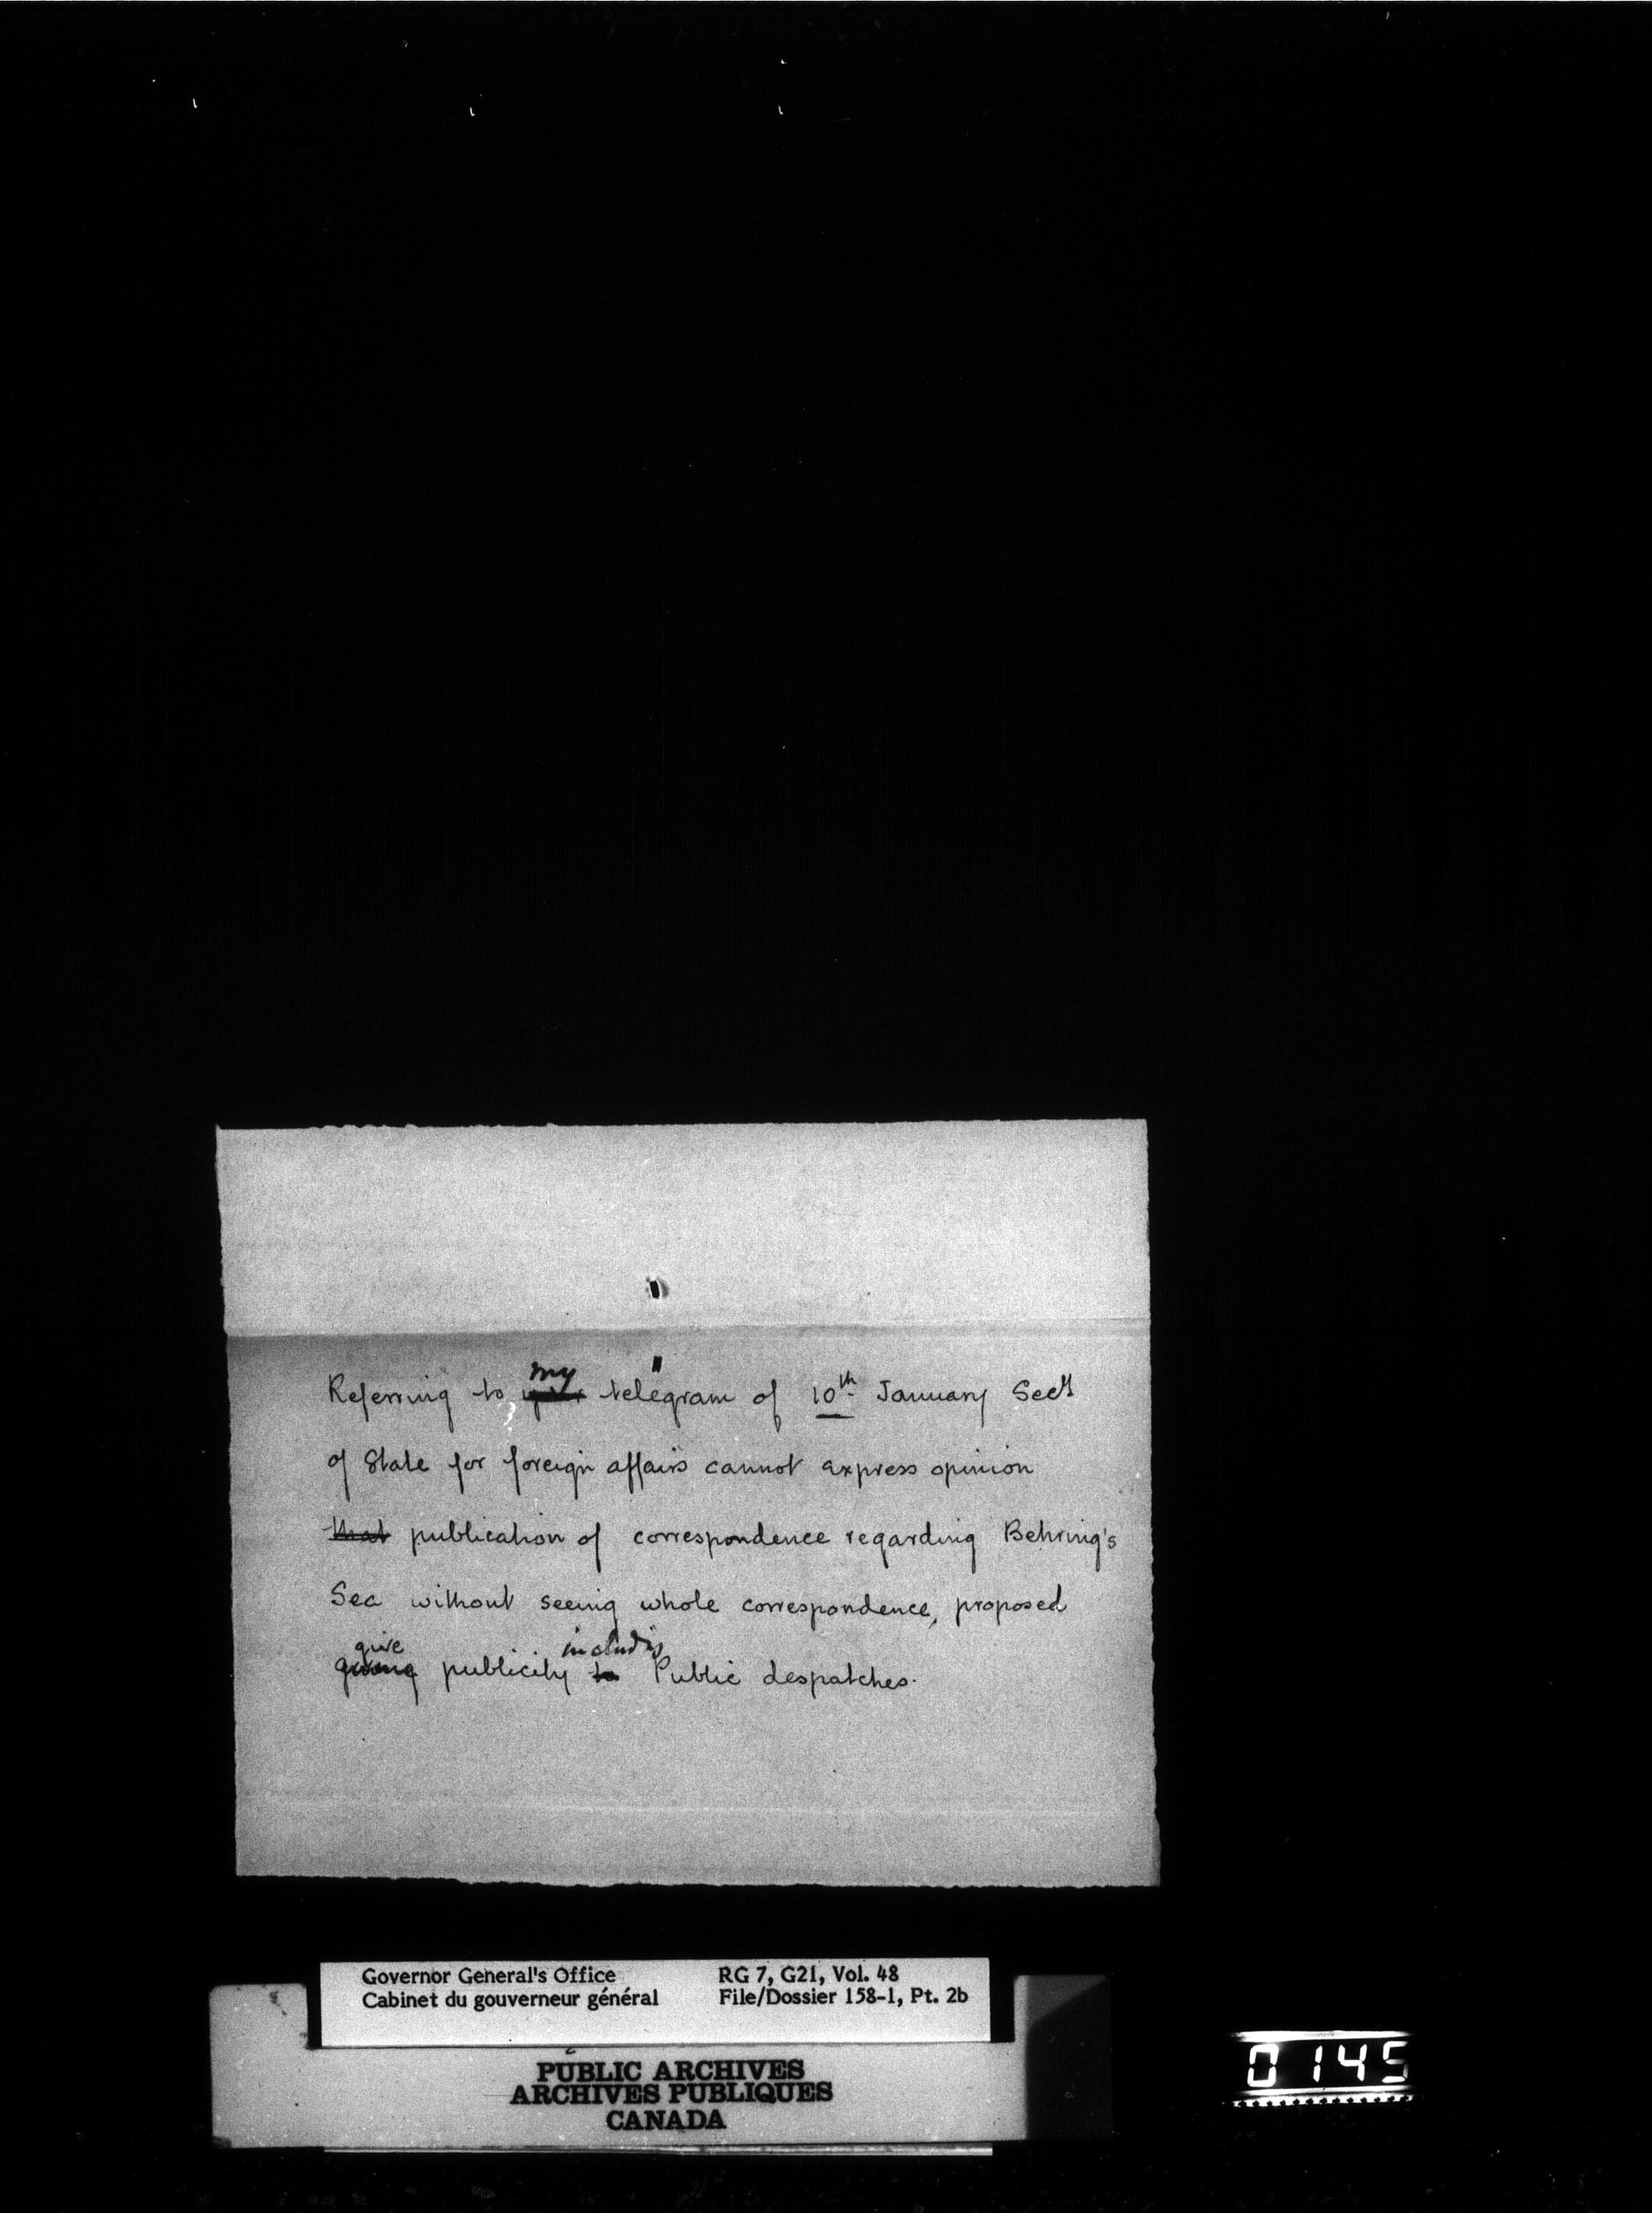 Referring to my telegram of 10th January Secy
of State for foreign affairs cannot express opinion
that publication of correspondence regarding Behring's
Sea without seeing whole correspondence, proposed
give including
giving publicity to Public despatches.
Governor General's Office RG 7, G21, Vol. 48
Cabinet du gouverneur général File/Dossier 158-1, Pt. 2b
PUBLIC ARCHIVES
ARCHIVES PUBLIQUES
CANADA
0145